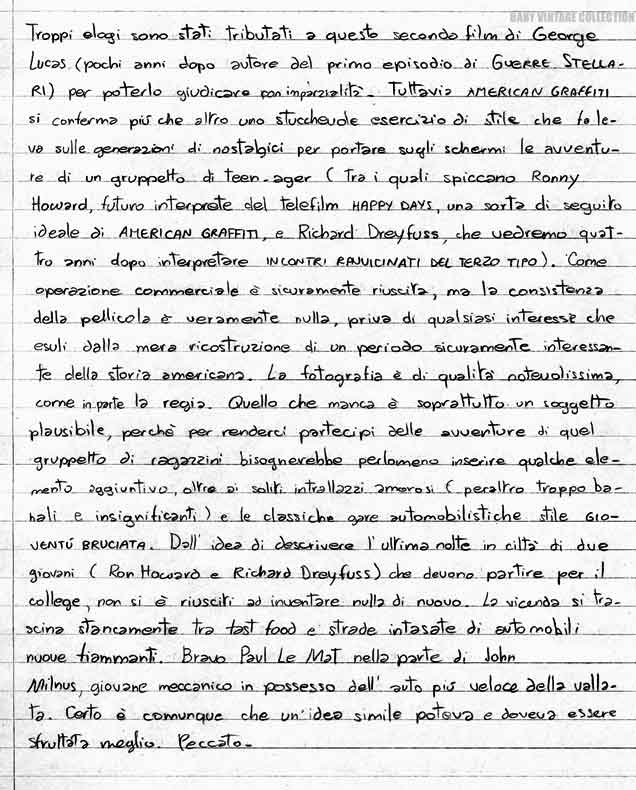 BABY VINTAGE COLLECTION
Troppi elogi sono stati tributati a questo secondo film di George
Lucas (pochi anni dopo autore del primo episodio di GUERRE STELLA-
RI) per poterlo giudicare con imparzialità. Tuttavia AMERICAN GRAFFITI
si conferma più che altro uno stucchevole esercizio di stile che fa le-
va sulle generazioni di nostalgici per portare sugli schermi le avventu-
re di un gruppetto di teen-ager (tra i quali spiccano Ronny
Howard, futuro interprete del telefilm HAPPY DAYS, una sorta di seguito
ideale di AMERICAN GRAFFITI, e Richard Dreyfuss, che vedremo quat-
tro anni dopo interpretare INCONTRI RAVVICINATI DEL TERZO TIPO). Come
operazione commerciale è sicuramente riuscita, ma la consistenza
della pellicola è veramente nulla, priva di qualsiasi interesse che
esuli dalla mera ricostruzione di un periodo sicuramente interessan-
te della storia americana. La fotografia è di qualità notevolissima,
come in parte la regia. Quello che manca è soprattutto un soggetto
plausibile, perchè per renderci partecipi delle avventure di quel
gruppetto di ragazzini bisognerebbe perlomeno inserire qualche ele-
mento aggiuntivo, oltre ai soliti intrallazzi amorosi (peraltro troppo ba-
nali e insignificanti) e le classiche gare automobilistiche stile GIO-
VENTÙ BRUCIATA. Dall'idea di descrivere l'ultima notte in città di due
giovani (Ron Howard e Richard Dreyfuss) che devono partire per il
college, non si è riusciti ad inventare nulla di nuovo. La vicenda si tra-
scina stancamente tra fast food e strade intasate di automobili
nuove fiammanti. Bravo Paul Le Mat nella parte di John
Milnus, giovane meccanico in possesso dell'auto più veloce della valla-
ta. Certo è comunque che un'idea simile poteva e doveva essere
sfruttata meglio. Peccato.